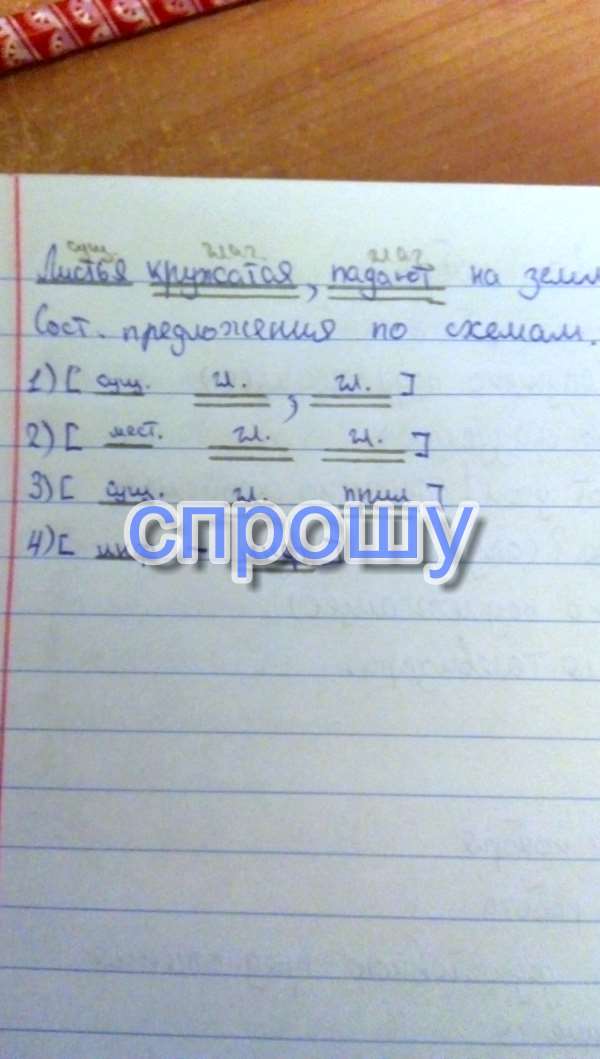 сущ. глаг. глаг.
Листья кружатся, падают на
Сост. предложения по схемам.
1) [ сущ. гл. , гл. ]
2) [ мест. гл. гл. ]
3) [ сущ. гл. ]
спрошу
4) [